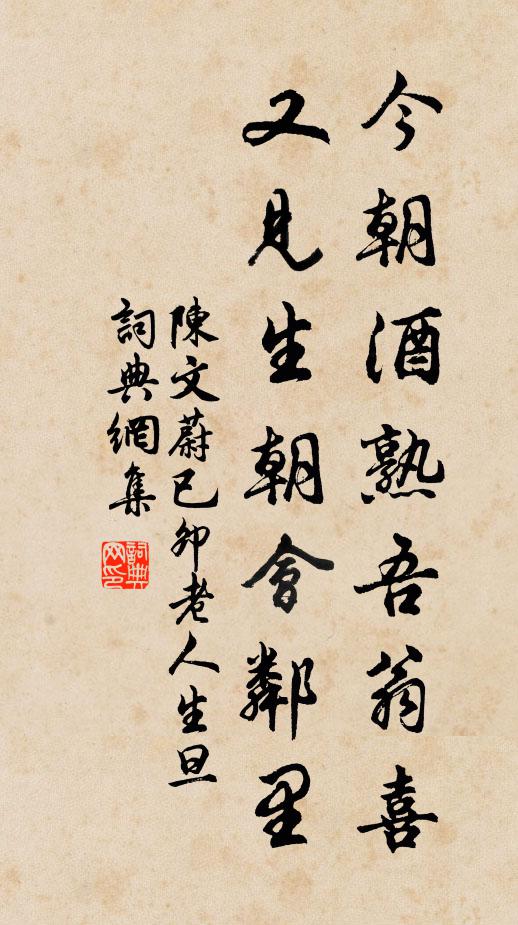 今朝酒熟吾翁喜
又見生朝會鄰里
陳文蔚己卯老人生旦
詞典網集
詞典网印